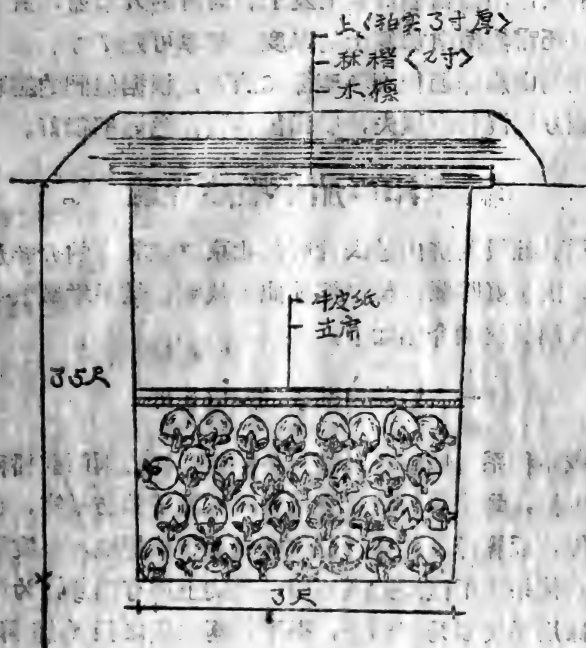 土〈拍实3寸厚〉
秫楷〈2寸〉
木檩
牛皮纸
席
3.5尺
3尺